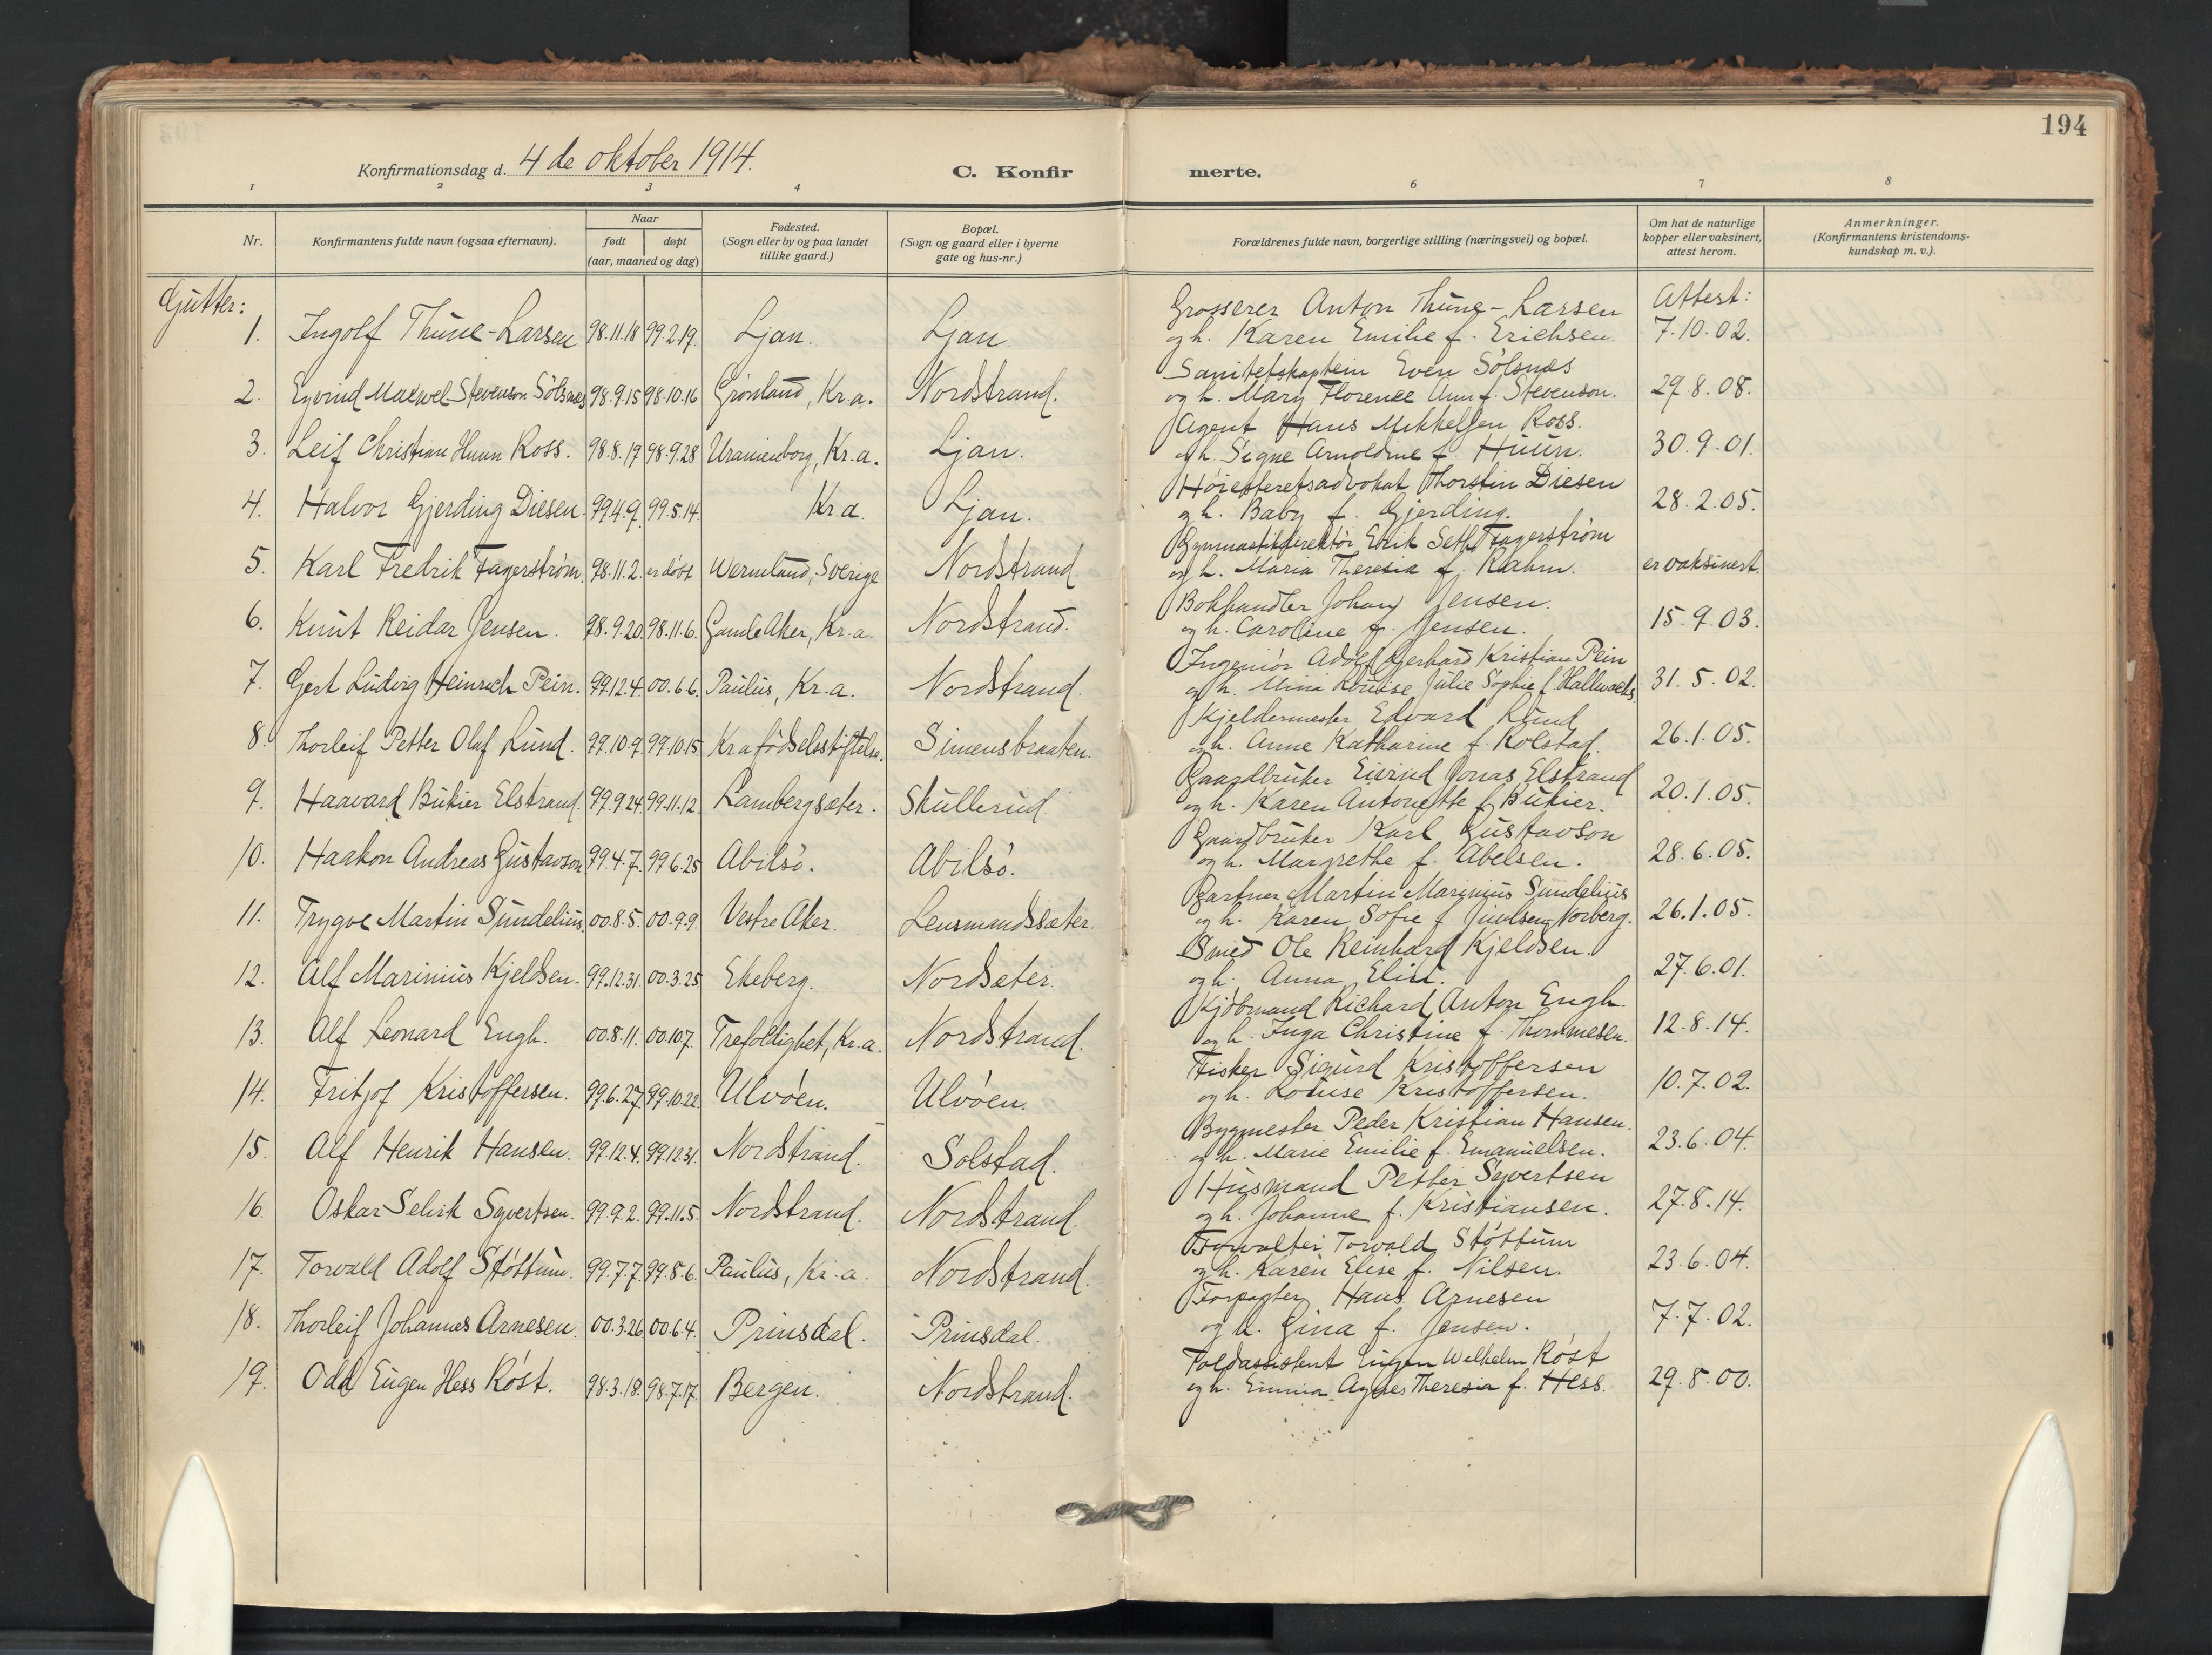 194
Konfirmationsdag d. 4 de oktober 1914. C. Konfir merte.
1 2 3 4 6 7 8
Nr. Konfirmantens fulde navn (ogsaa efternavn). Naar født døpt (aar, maaned og dag) Fødested. (Sogn eller by og paa landet tillike gaard.) Bopæl. (Sogn og gaard eller i byerne gate og hus-nr.) Forældrenes fulde navn, borgerlige stilling (næringsvei) og bopæl. Om hat de naturlige kopper eller vaksinert, attest herom. Anmerkninger. (Konfirmantens kristendoms-kundskap m. v.).
Gutter:
Attest:
1. Ingolf Thune-Larsen 98.11.18 99.2.19. Ljan. Ljan. Grosserer Anton Thune-Larsen
og h. Karen Emilie f. Erichsen. 7.10.02.
2. Eyvind Maxwel Stevenson Sölsnes 98.9.15 98.10.16 Grönland, Kr.a. Nordstrand. Sanitetskaptein Even Sölsnes
og h. Mary Florence Ann f. Stevenson. 29.8.08.
3. Leif Christian Huun Ross. 98.8.19 98.9.28 Uranienborg, Kr.a. Ljan. Agent Hans Mikkelsen Ross.
og h. Signe Arnoldine f. Huun. 30.9.01.
4. Halvor Gjerding Diesen. 99.4.9. 99.5.14. Kr.a. Ljan. Höiesteretsadvokat Thorstin Diesen
og h. Baby f. Gjerding. 28.2.05.
5. Karl Fredrik Fagerström. 98.11.2. er döbt Wermland, Sverige Nordstrand. Gymnastikdirektör Erik Seth Fagerström
og h. Maria Theresia f. Rahm. er vaksinert.
6. Knut Reidar Jensen. 98.9.20. 98.11.6. Gamle Aker, Kr.a. Nordstrand. Bokhandler Johan Jensen.
og h. Caroline f. Jensen. 15.9.03.
7. Gert Ludvig Heinrich Pein. 99.12.4. 00.6.6. Paulus, Kr.a. Nordstrand. Ingeniör Adolf Gerhard Kristian Pein
og h. Mina Louise Julie Sophie f. Hallwachs. 31.5.02.
8. Thorleif Petter Olaf Lund. 99.10.9. 99.10.15 Kr.a födselsstiftelse. Simensbraaten. Kjeldermester Edvard Lund
og h. Anne Katharine f. Rolstad. 26.1.05.
9. Haavard Bukier Elstrand. 99.9.24. 99.11.12. Lambergsæter. Skullerud. Gaardbruker Eivind Jonas Elstrand
og h. Karen Antonette f. Bukier. 20.1.05.
10. Haakon Andreas Gustavson 99.4.7. 99.6.25 Abilsö. Abilsö. Gaardbruker Karl Gustavson
og h. Margrethe f. Abelsen. 28.6.05.
11. Trygve Martin Sundelius. 00.8.5. 00.9.9. Vestre Aker. Lensmandssæter. Gartner Martin Marinius Sundelius
og h. Karen Sofie f. Juulsen Norberg. 26.1.05.
12. Alf Marinius Kjeldsen. 99.12.31. 00.3.25 Ekeberg. Nordseter. Smed Ole Reinhard Kjeldsen.
og h. Anna Elise. 27.6.01.
13. Alf Leonard Engh. 00.8.11. 00.10.7. Trefoldighet, Kr.a. Nordstrand. Kjöbmand Richard Anton Engh.
og h. Inga Christine f. Thommesen. 12.8.14.
14. Fritjof Kristoffersen. 99.6.27. 99.10.22. Ulvöen. Ulvöen. Fisker Sigurd Kristoffersen
og h. Louise Kristoffersen. 10.7.02.
15. Alf Henrik Hansen. 99.12.4. 99.12.31. Nordstrand. Solstad. Bygmester Peder Kristian Hansen.
og h. Marie Emilie f. Emanuelsen. 23.6.04.
16. Oskar Selvik Syvertsen. 99.9.2. 99.11.5. Nordstrand. Nordstrand. Husmand Petter Syvertsen
og h. Johanne f. Kristiansen. 27.8.14.
17. Torvald Adolf Stöttum. 99.7.7. 99.8.6. Paulus, Kr.a. Nordstrand. Forvalter Torvald Stöttum
og h. Karen Elise f. Nilsen. 23.6.04.
18. Thorleif Johannes Arnesen. 00.3.26 00.6.4. Prinsdal. Prinsdal. Forpagter Hans Arnesen
og h. Gina f. Jensen. 7.7.02.
19. Odd Eugen Hess Röst. 98.3.18. 98.7.17. Bergen. Nordstrand. Toldassistent Eugen Wilhelm Röst
og h. Emma Agnes Theresia f. Hess. 29.8.00.